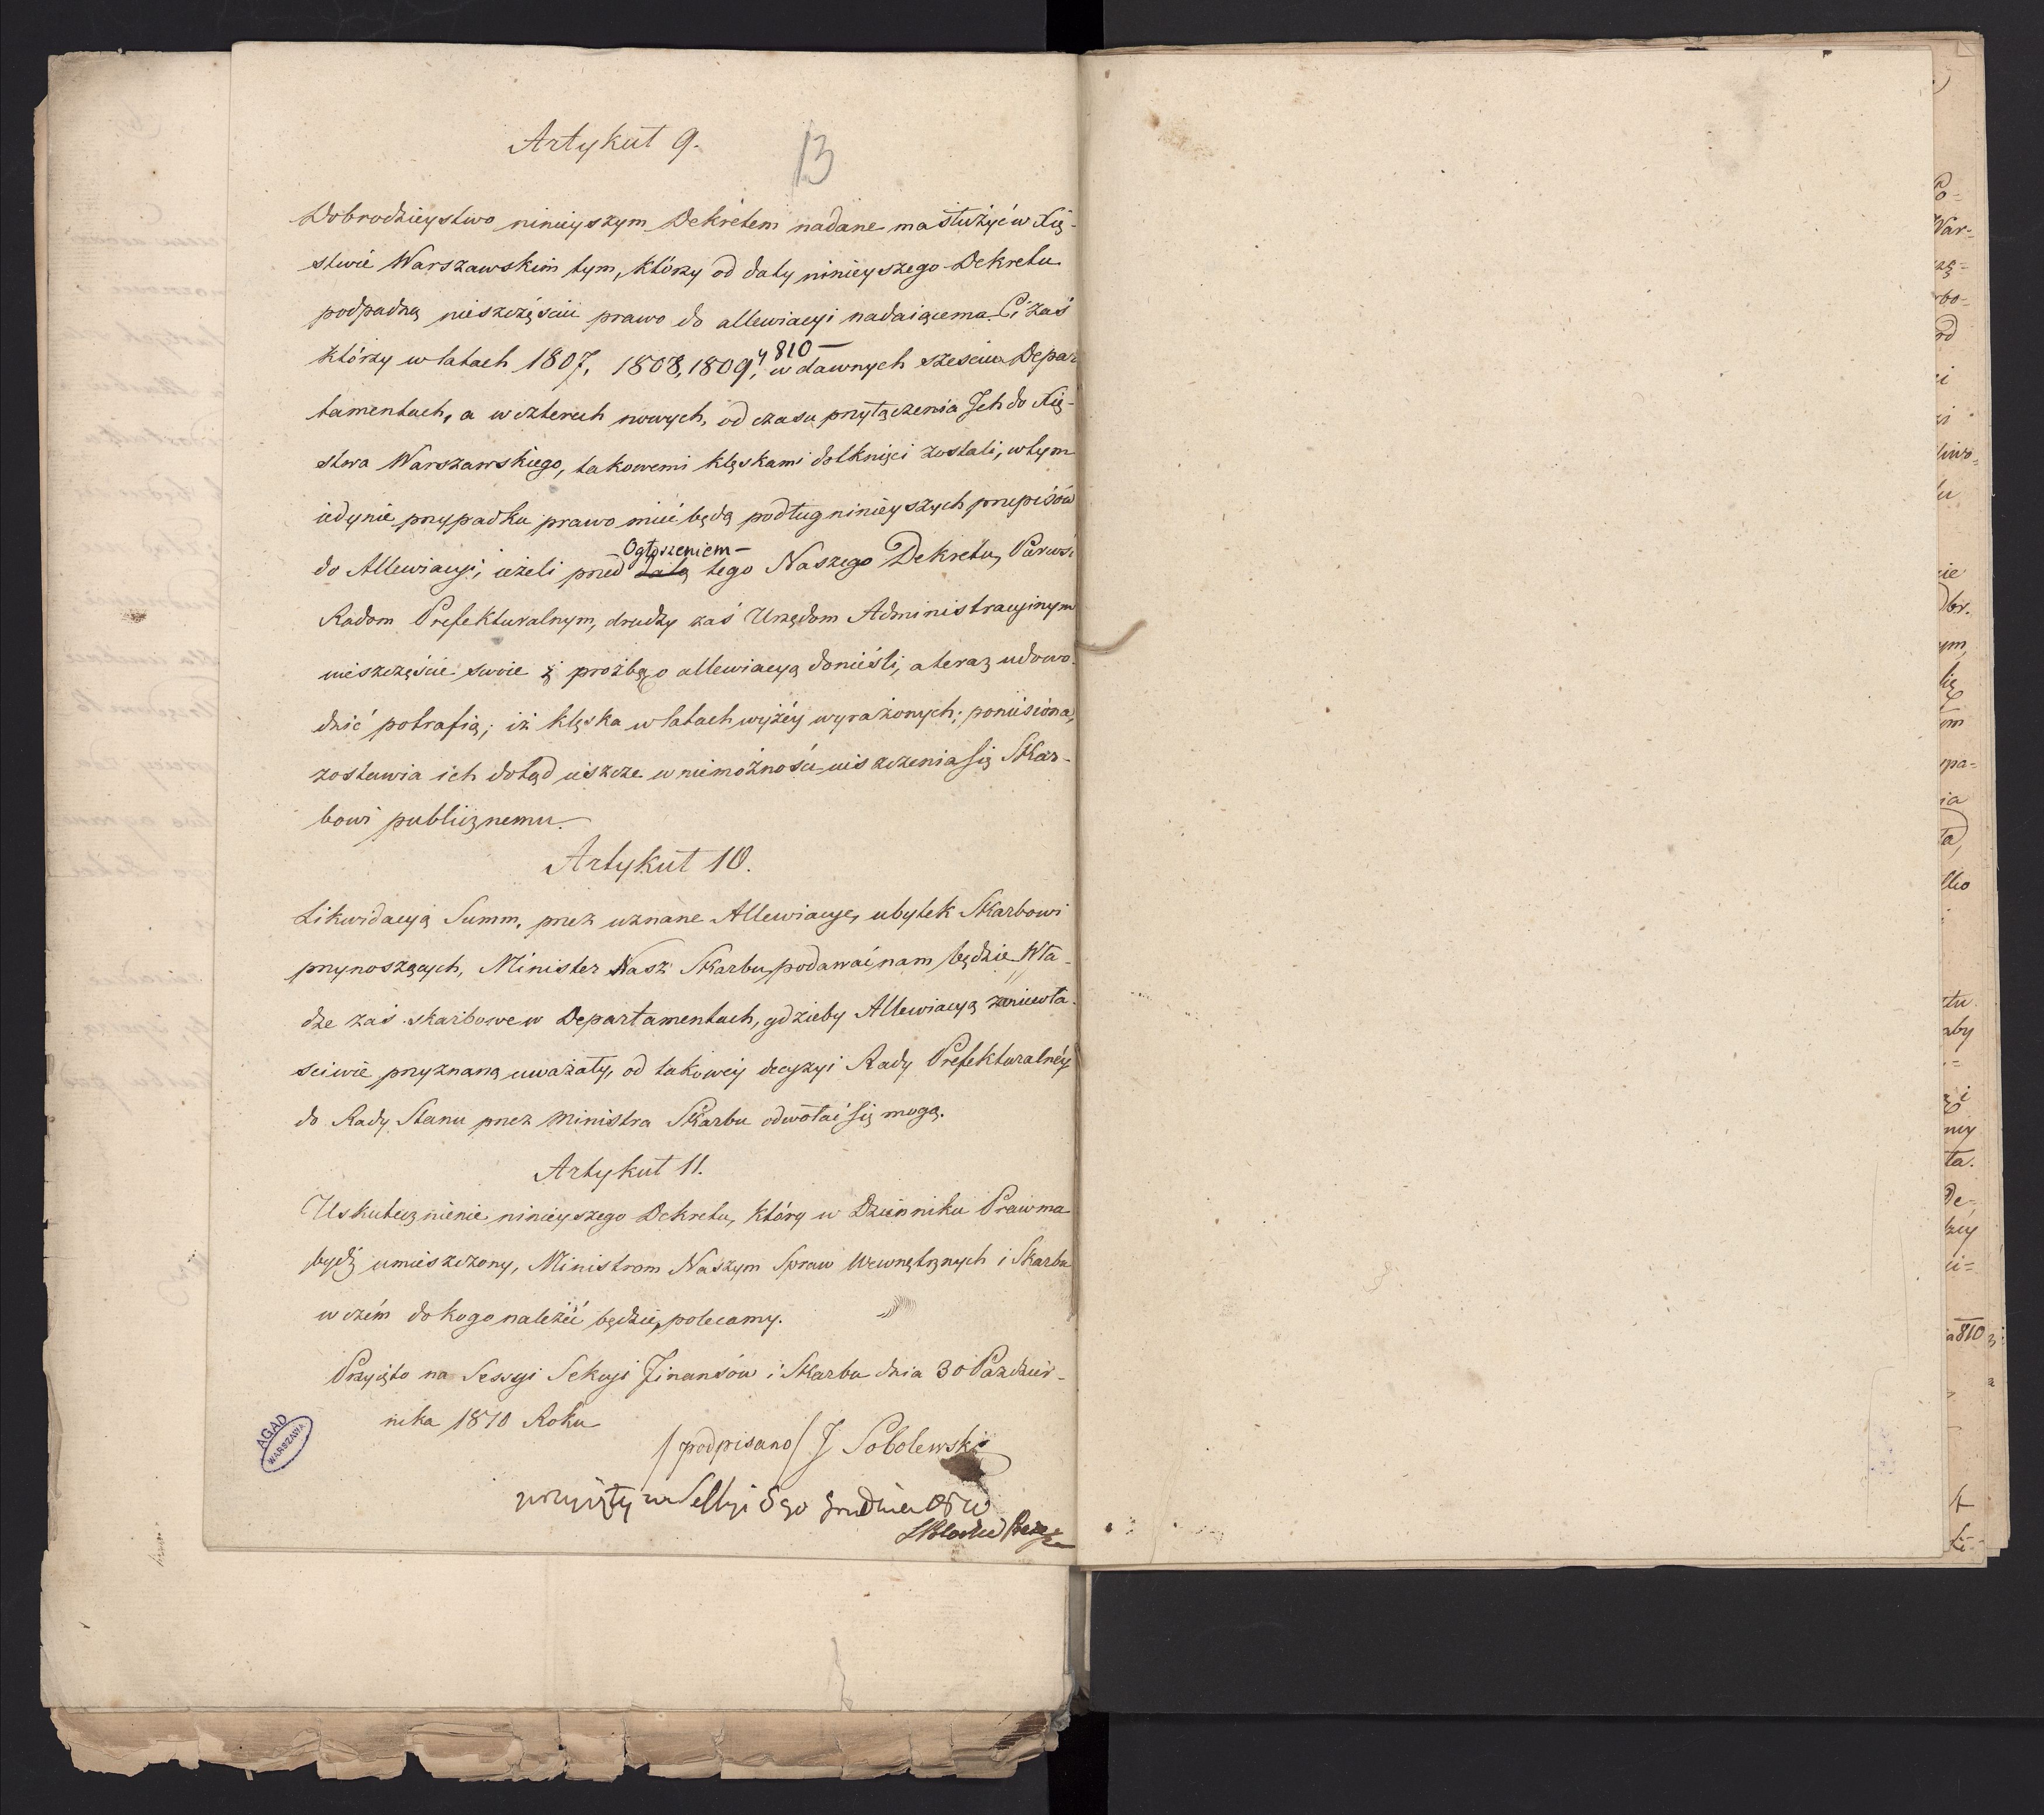 Artykuł 9.
13
Dobrodzieystwo ninieyszym Dekretem nadane ma służyć w Xię-
stwie Warszawskim tym, którzy od daty ninieyszego Dekretu
podpadną nieszczęściu prawo do allewiacyi nadaiącemu. Ci zaś
którzy w latach 1807, 1808, 1809, y 810 w dawnych sześciu Depar
tamentach, a w czterech nowych, od czasu przyłączenia Ich do Xię-
stwa Warszawskiego, takowemi klęskami dotknięci zostali, w tym
iedynie przypadku prawo mieć będą podług ninieyszych przepisów
do Allewiacyi, ieżeli przed datą Ogłoszeniem tego Naszego Dekretu, Pierwsi
Radom Prefekturalnym, drudzy zaś Urzędom Administracyinym
nieszczęście swoie i prożbę o allewiacyą donieśli, a teraz udowo-
dnić potrafią; iż klęska w latach wyżéy wyrażonych; poniesiona,
zostawia ich dotąd ieszcze w niemożności uiszczenia się Skar-
bowi publicznemu.
Artykuł 10.
Likwidacyą Summ, przez uznane Allewiacye, ubytek Skarbowi
przynoszących, Minister Nasz Skarbu podawać nam będzie Wła-
dze zaś skarbowe w Departamentach, gdzieby Allewiacyą za niewła-
ściwie przyznaną uważały, od takowey decyzyi Rady Prefekturalnéy
do Rady Stanu przez Ministra Skarbu odwołać się mogą.
Artykuł 11.
Uskutecznienie ninieyszego Dekretu, który w Dzienniku Praw ma
bydź umieszczony, Ministrom Naszym Spraw Wewnętrznych i Skarbu
w czém do kogo należéć będzie, polecamy.
Przyięto na Sessyi Sekcyi Finansów i Skarbu dnia 30 Paździer-
nika 1810 Roku
/podpisano/ J Sobolewski
przyięty na Sessyi 5go Grudnia
AGAD
WARSZAWA